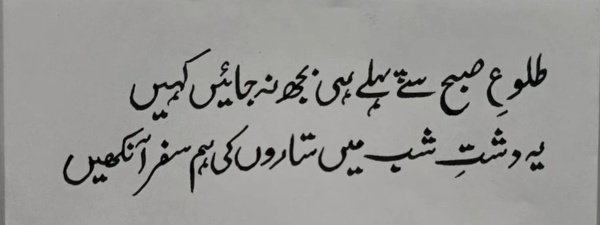 طلوعِ صبح سے پہلے ہی بجھ نہ جائیں کہیں
یہ دشتِ شب میں ستاروں کی ہم سفر آنکھیں